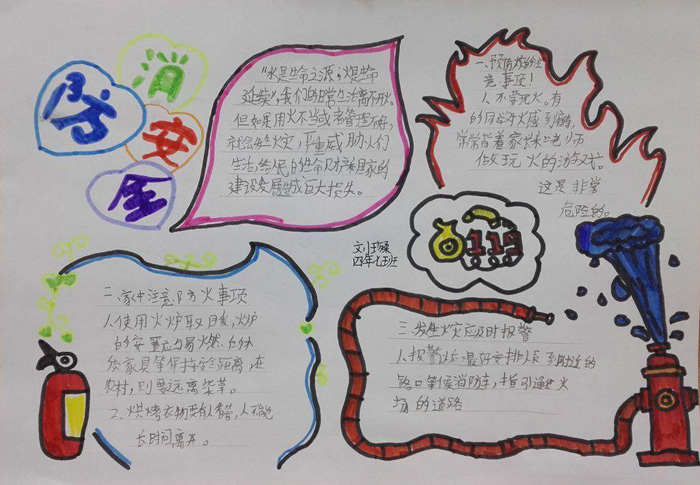 消
防
安
全
"水是生命之源，火是生命
延续"，我们的日常生活离不开火。
但如果用火不当或者管理不好，
就会发生火灾，严重威胁人们
生活，给人民的生命财产和国家的
建设发展造成巨大损失。
一、预防火灾的注
意事项！
人不要玩火。有
的同学对火感到新鲜，
常常背着家长和老师
做玩火的游戏。
这是非常
危险的。
119
四年七班
二、家中注意防火事项
1、使用火炉取暖，火炉
的安置与易燃的木
质家具等保持安全距离，在
农村，则要远离柴草。
2、烘烤衣物要有人管，人不能
长时间离开。
三、发生火灾应及时报警
1、报警后最好安排人员到附近的
路口等候消防车，指引通往火
场的道路